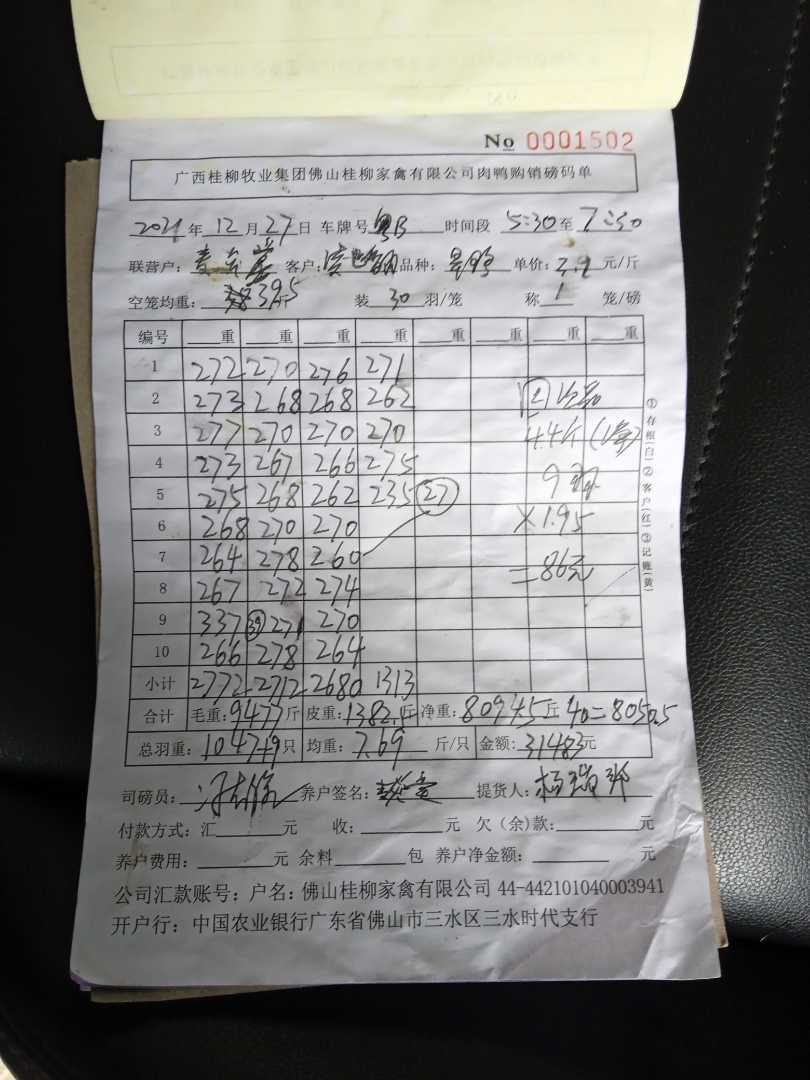 No 0001502
广西桂柳牧业集团佛山桂柳家禽有限公司肉鸭购销磅码单
2021年12月27日 车牌号 粤B 时间段 5:30至7:30
联营户: 客户: 品种: 单价: 3.9元/斤
空笼均重: 39.5斤 装 30 羽/笼 称 1 笼/磅
编号 重 重 重 重 重 重 重
1 272 270 276 271
2 273 268 268 262
3 277 270 270 270
4 273 267 266 275
5 275 268 262 235 27
6 268 270 270
7 264 278 260
8 267 272 274
9 337 39 271 270
10 266 278 264
小计 2772 2712 2680 1313
44斤
9
×1.95
=86元
①存根(白)②客户(红)③记账(黄)
合计 毛重: 9477斤 皮重: 1382.5斤 净重: 8094.5斤 40=8050.5
总羽重: 1047+9只 均重: 7.69 斤/只 金额: 31483元
司磅员: 养户签名: 提货人:
付款方式: 汇 元 收: 元 欠(余)款: 元
养户费用: 元 余料 包 养户净金额: 元
公司汇款账号: 户名: 佛山桂柳家禽有限公司 44-442101040003941
开户行: 中国农业银行广东省佛山市三水区三水时代支行